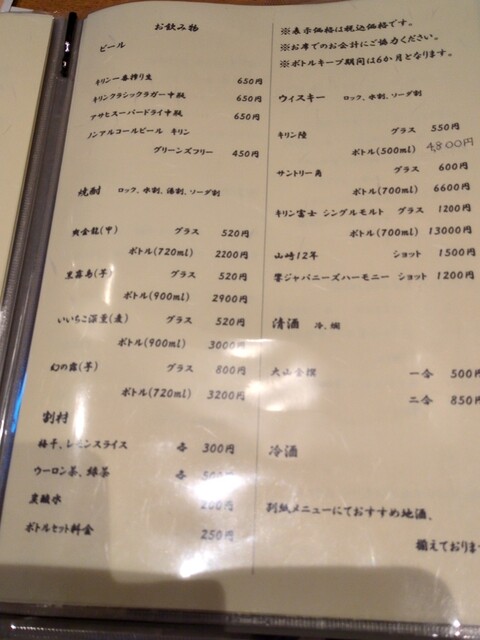 お飲み物
ビール
キリン一番搾り生 650円
キリンクラシックラガー中瓶 650円
アサヒスーパードライ中瓶 650円
ノンアルコールビール キリン
グリーンズフリー 450円
焼酎 ロック、水割、湯割、ソーダ割
爽金龍(甲) グラス 520円
ボトル(720ml) 2200円
黒霧島(芋) グラス 520円
ボトル(900ml) 2900円
いいちこ深薫(麦) グラス 520円
ボトル(900ml) 3000円
幻の露(芋) グラス 800円
ボトル(720ml) 3200円
割材
梅干、レモンスライス 各 300円
ウーロン茶、緑茶 各 500円
炭酸水 200円
ボトルセット料金 250円
※表示価格は税込価格です。
※お席でのお会計にご協力ください。
※ボトルキープ期間は6か月となります。
ウィスキー ロック、水割、ソーダ割
キリン陸 グラス 550円
ボトル(500ml) 4,800円
サントリー角 グラス 600円
ボトル(700ml) 6600円
キリン富士 シングルモルト グラス 1200円
ボトル(700ml) 13000円
山崎12年 ショット 1500円
響ジャパニーズハーモニー ショット 1200円
清酒 冷、燗
大山金撰 一合 500円
二合 850円
冷酒
別紙メニューにておすすめ地酒、
揃えておりま